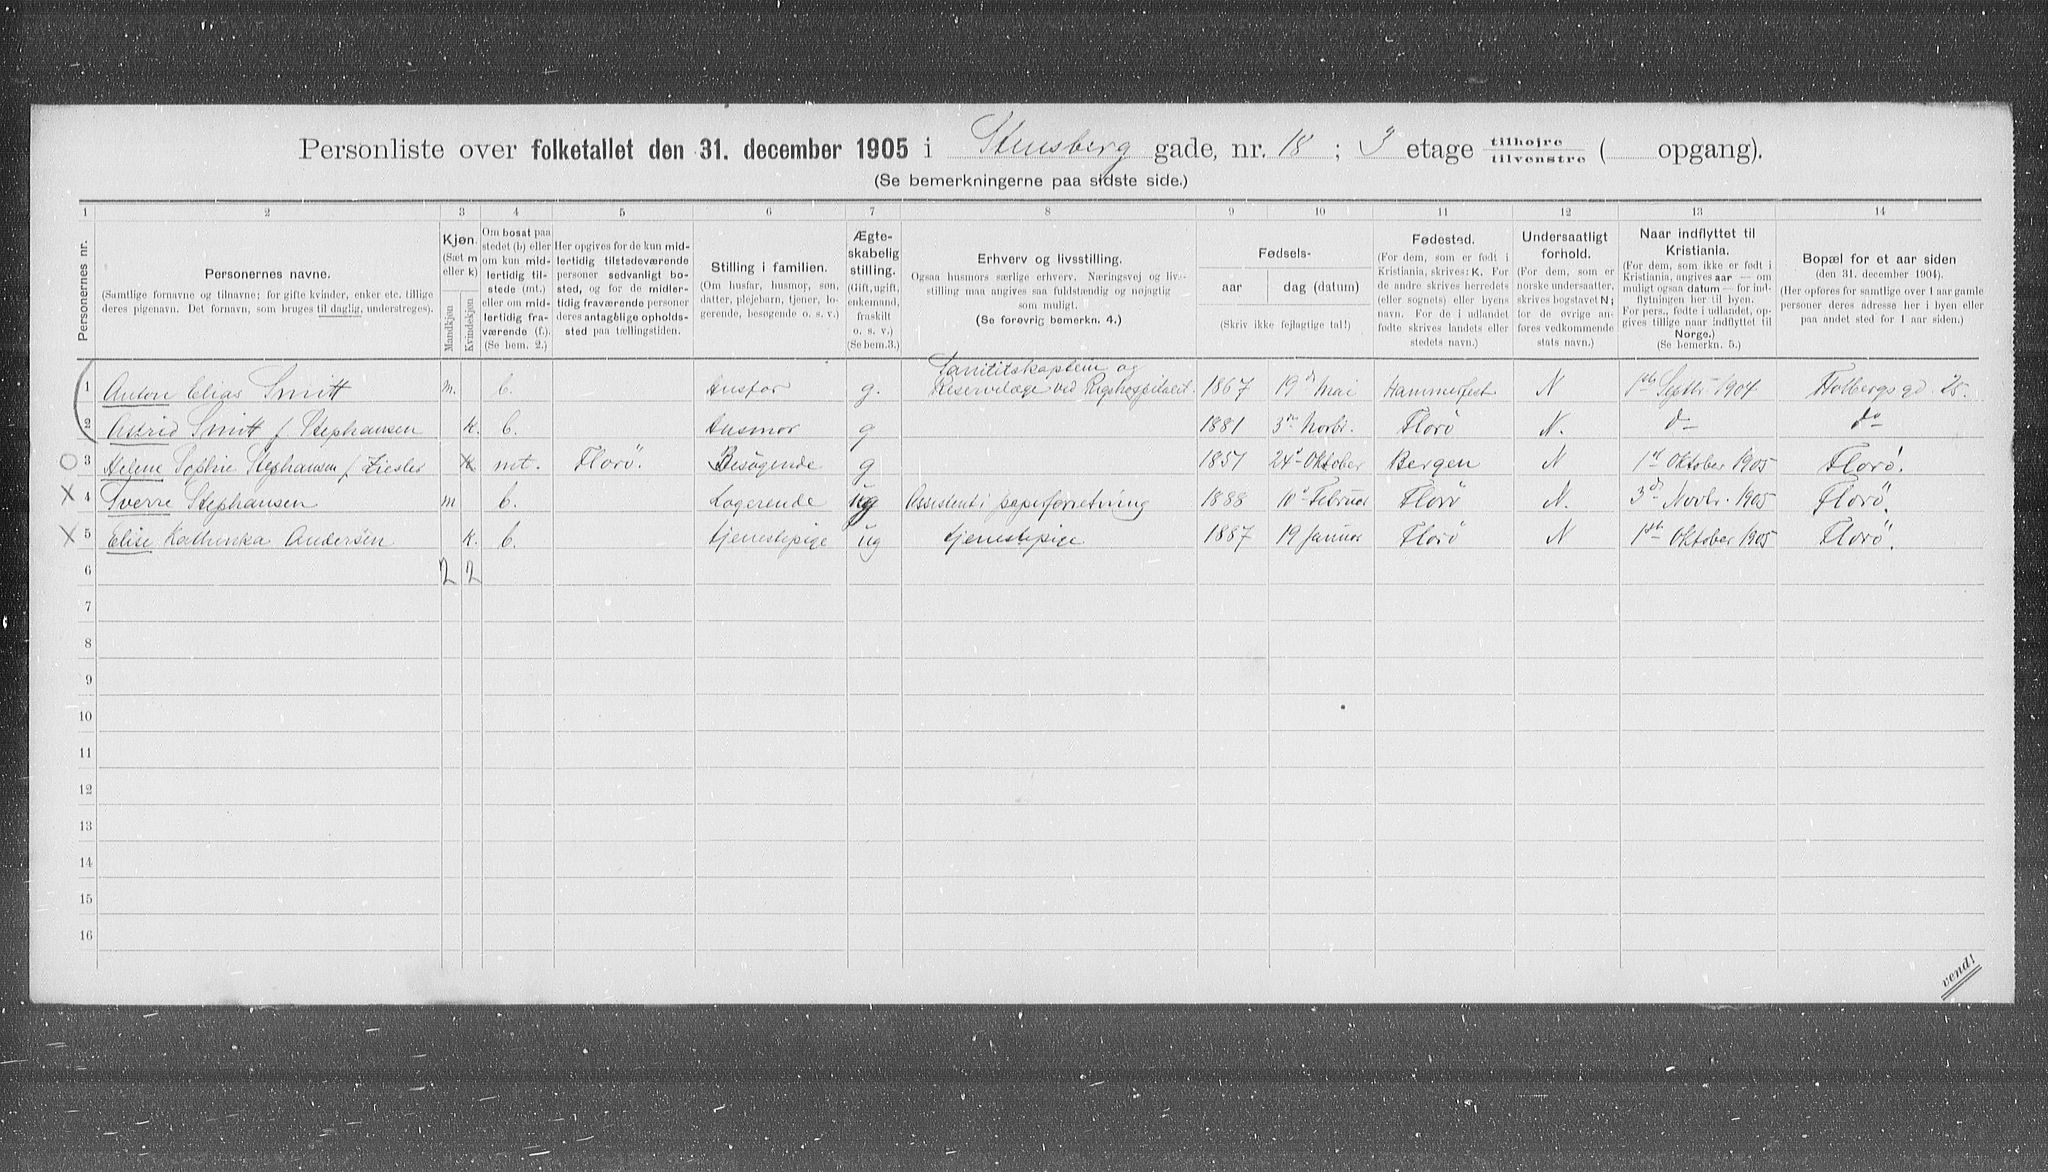 Personliste over folketallet den 31. december 1905 i Stensberg gade, nr. 18; 3 etage tilhøjre / tilvenstre ( opgang).
(Se bemerkningerne paa sidste side.)
1 2 3 4 5 6 7 8 9 10 11 12 13 14
Personernes nr.
Personernes navne.
(Samtlige fornavne og tilnavne; for gifte kvinder, enker etc. tillige
deres pigenavn. Det fornavn, som bruges til daglig, understreges).
Kjøn.
(Sæt m
eller k)
Mandkjøn
Kvindekjøn
Om bosat paa
stedet (b) eller
om kun mid-
lertidig til-
stede (mt.)
eller om mid-
lertidig fra-
værende (f.).
(Se bem. 2.)
Her opgives for de kun mid-
lertidig tilstedeværende
personer sedvanligt bo-
sted, og for de midler-
tidig fraværende personer
deres antagelige opholds-
sted paa tællingstiden.
Stilling i familien.
(Om husfar, husmor, søn,
datter, plejebarn, tjener, lo-
gerende, besøgende o. s. v.)
Ægte-
skabelig
stilling.
(Gift, ugift,
enkemand,
fraskilt
o. s. v.)
(Se bem.3.)
Erhverv og livsstilling.
Ogsaa husmors særlige erhverv. Næringsvej og liv-
stilling maa angives saa fuldstændig og nøjagtig
som muligt.
(Se forøvrig bemerkn. 4.)
Fødsels-
aar
dag (datum)
(Skriv ikke fejlagtige tal!)
Fødested.
(For dem, som er født i
Kristiania, skrives: K. For
de andre skrives herredets
(eller sognets) eller byens
navn. For de i udlandet
fødte skrives landets eller
stedets navn.)
Undersaatligt
forhold.
(For dem, som er
norske undersaatter,
skrives bogstavet N;
for de øvrige an-
føres vedkommende
stats navn.)
Naar indflyttet til
Kristiania.
(For dem, som ikke er født i
Kristiania, angives aar — om
muligt ogsaa datum — for ind-
flytningen her til byen.
For pers., fødte i udlandet, op-
gives tillige naar indflyttet til
Norge.)
(Se bemerkn. 5.)
Bopæl for et aar siden
(den 31. december 1904).
(Her opføres for samtlige over 1 aar gamle
personer deres adresse her i byen eller
paa andet sted for 1 aar siden.)
1 Anton Elias Smitt m. b. Husfar g. Sanitetskaptein og Reservelæge ved Rigshospitalet 1867 19d Mai Hammerfest N 1ste Septbr 1904 Holbergs gd 25.
2 Astrid Smitt f Stephansen k. b. Husmor g 1881 3die Novbr. Florö N. do do
3 Helene Sophie Stephansen f Ziesler k. mt. Florö. Besøgende g 1851 24d Oktober Bergen N 1st Oktober 1905 Florö.
4 Sverre Stephansen m b. Logerende ug Assistent i papirforretning 1888 10d Februar Florö N. 3d Novbr. 1905 Florö.
5 Elise Kathinka Andersen k. b. tjenestepige ug tjenestepige 1887 19 Januar Florö N 1ste Oktober 1905 Florö.
6 2 2
7
8
9
10
11
12
13
14
15
16
vend!